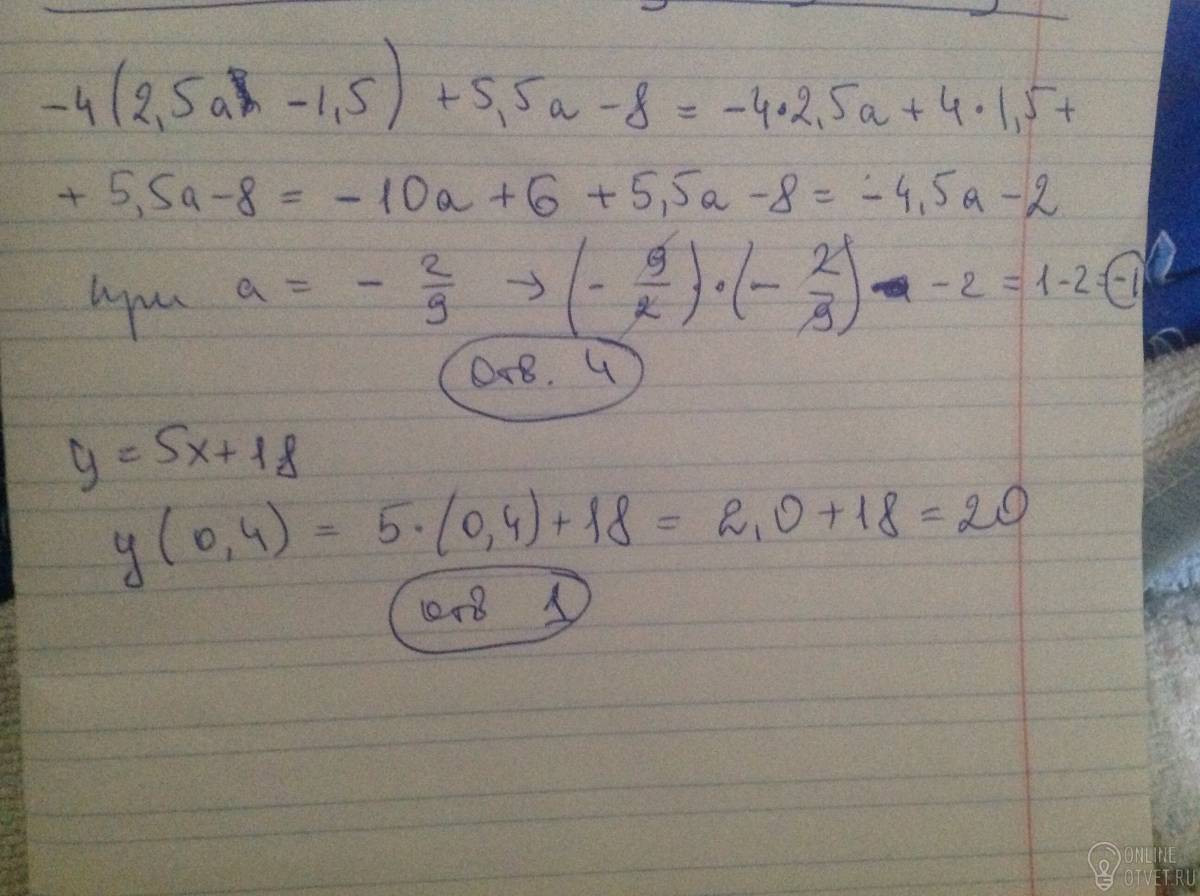 -4(2,5a -1,5) +5,5a -8 = -4•2,5a + 4•1,5+
+ 5,5a-8 = -10a +6 +5,5a -8 = -4,5a -2
при a = - 2/9 → (- 9/2)•(- 2/9) -2 = 1-2=-1
Отв. 4
y = 5x+18
y(0,4) = 5•(0,4)+18 = 2,0+18=20
отв 1
ONLINE
OTVET.RU